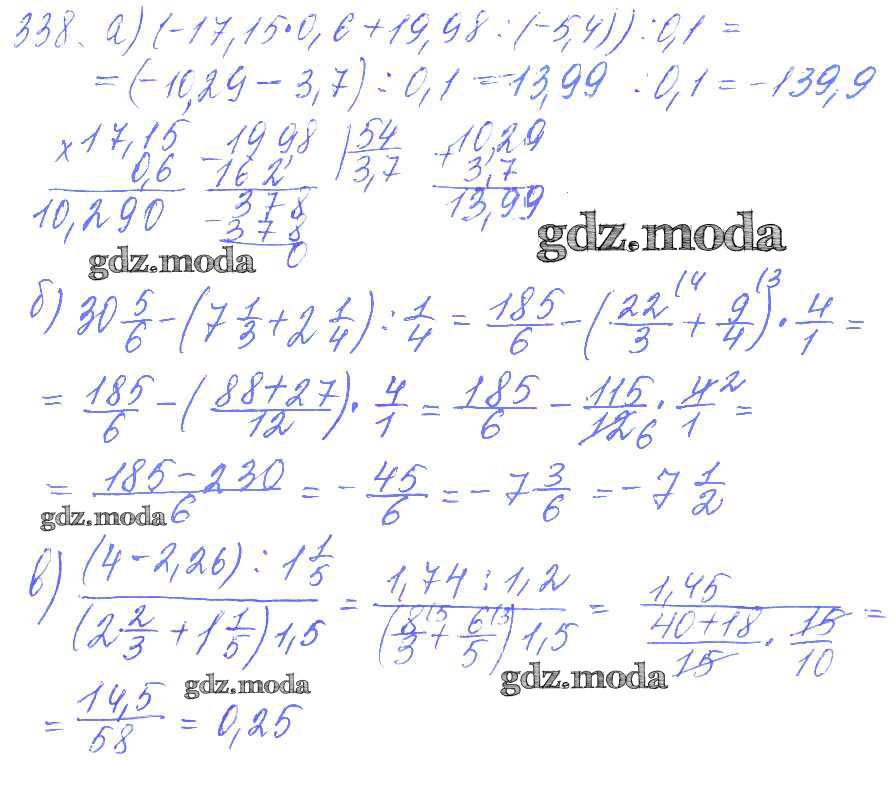 338. а) (-17,15·0,6+19,98:(-5,4)):0,1=
=(-10,29-3,7):0,1=-13,99:0,1=-139,9
×17,15 -19 98 |54 +10,29
0,6 16 2 3,7 3,7
10,290 -3 7 8 13,99
3 7 8
0
gdz.moda gdz.moda
б) 30 5/6 - (7 1/3 + 2 1/4) : 1/4 = 185/6 - (22/3 (4 + 9/4 (3) · 4/1 =
= 185/6 - (88+27/12) · 4/1 = 185/6 - 115/12 6 · 4 2/1 =
= 185-230/6 = - 45/6 = - 7 3/6 = - 7 1/2
gdz.moda
в) (4-2,26) : 1 1/5 / (2 2/3 + 1 1/5) 1,5 = 1,74 : 1,2 / (8/3 (5 + 6/5 (3) 1,5 = 1,45 / 40+18/15 · 15/10 =
gdz.moda gdz.moda
= 14,5/58 = 0,25